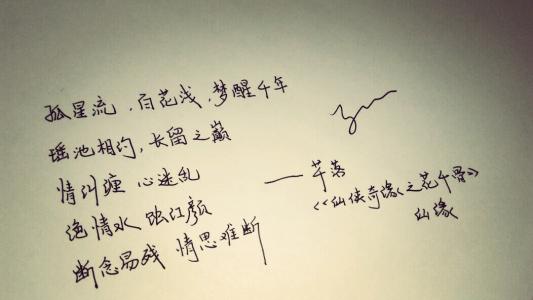 孤星流,百花浅,梦醒千年
瑶池相约,长留之巅
情纠缠 心迷乱
绝情水 蚀红颜
断念易残 情思难断
——芊落
《仙侠奇缘之花千骨》
仙缘